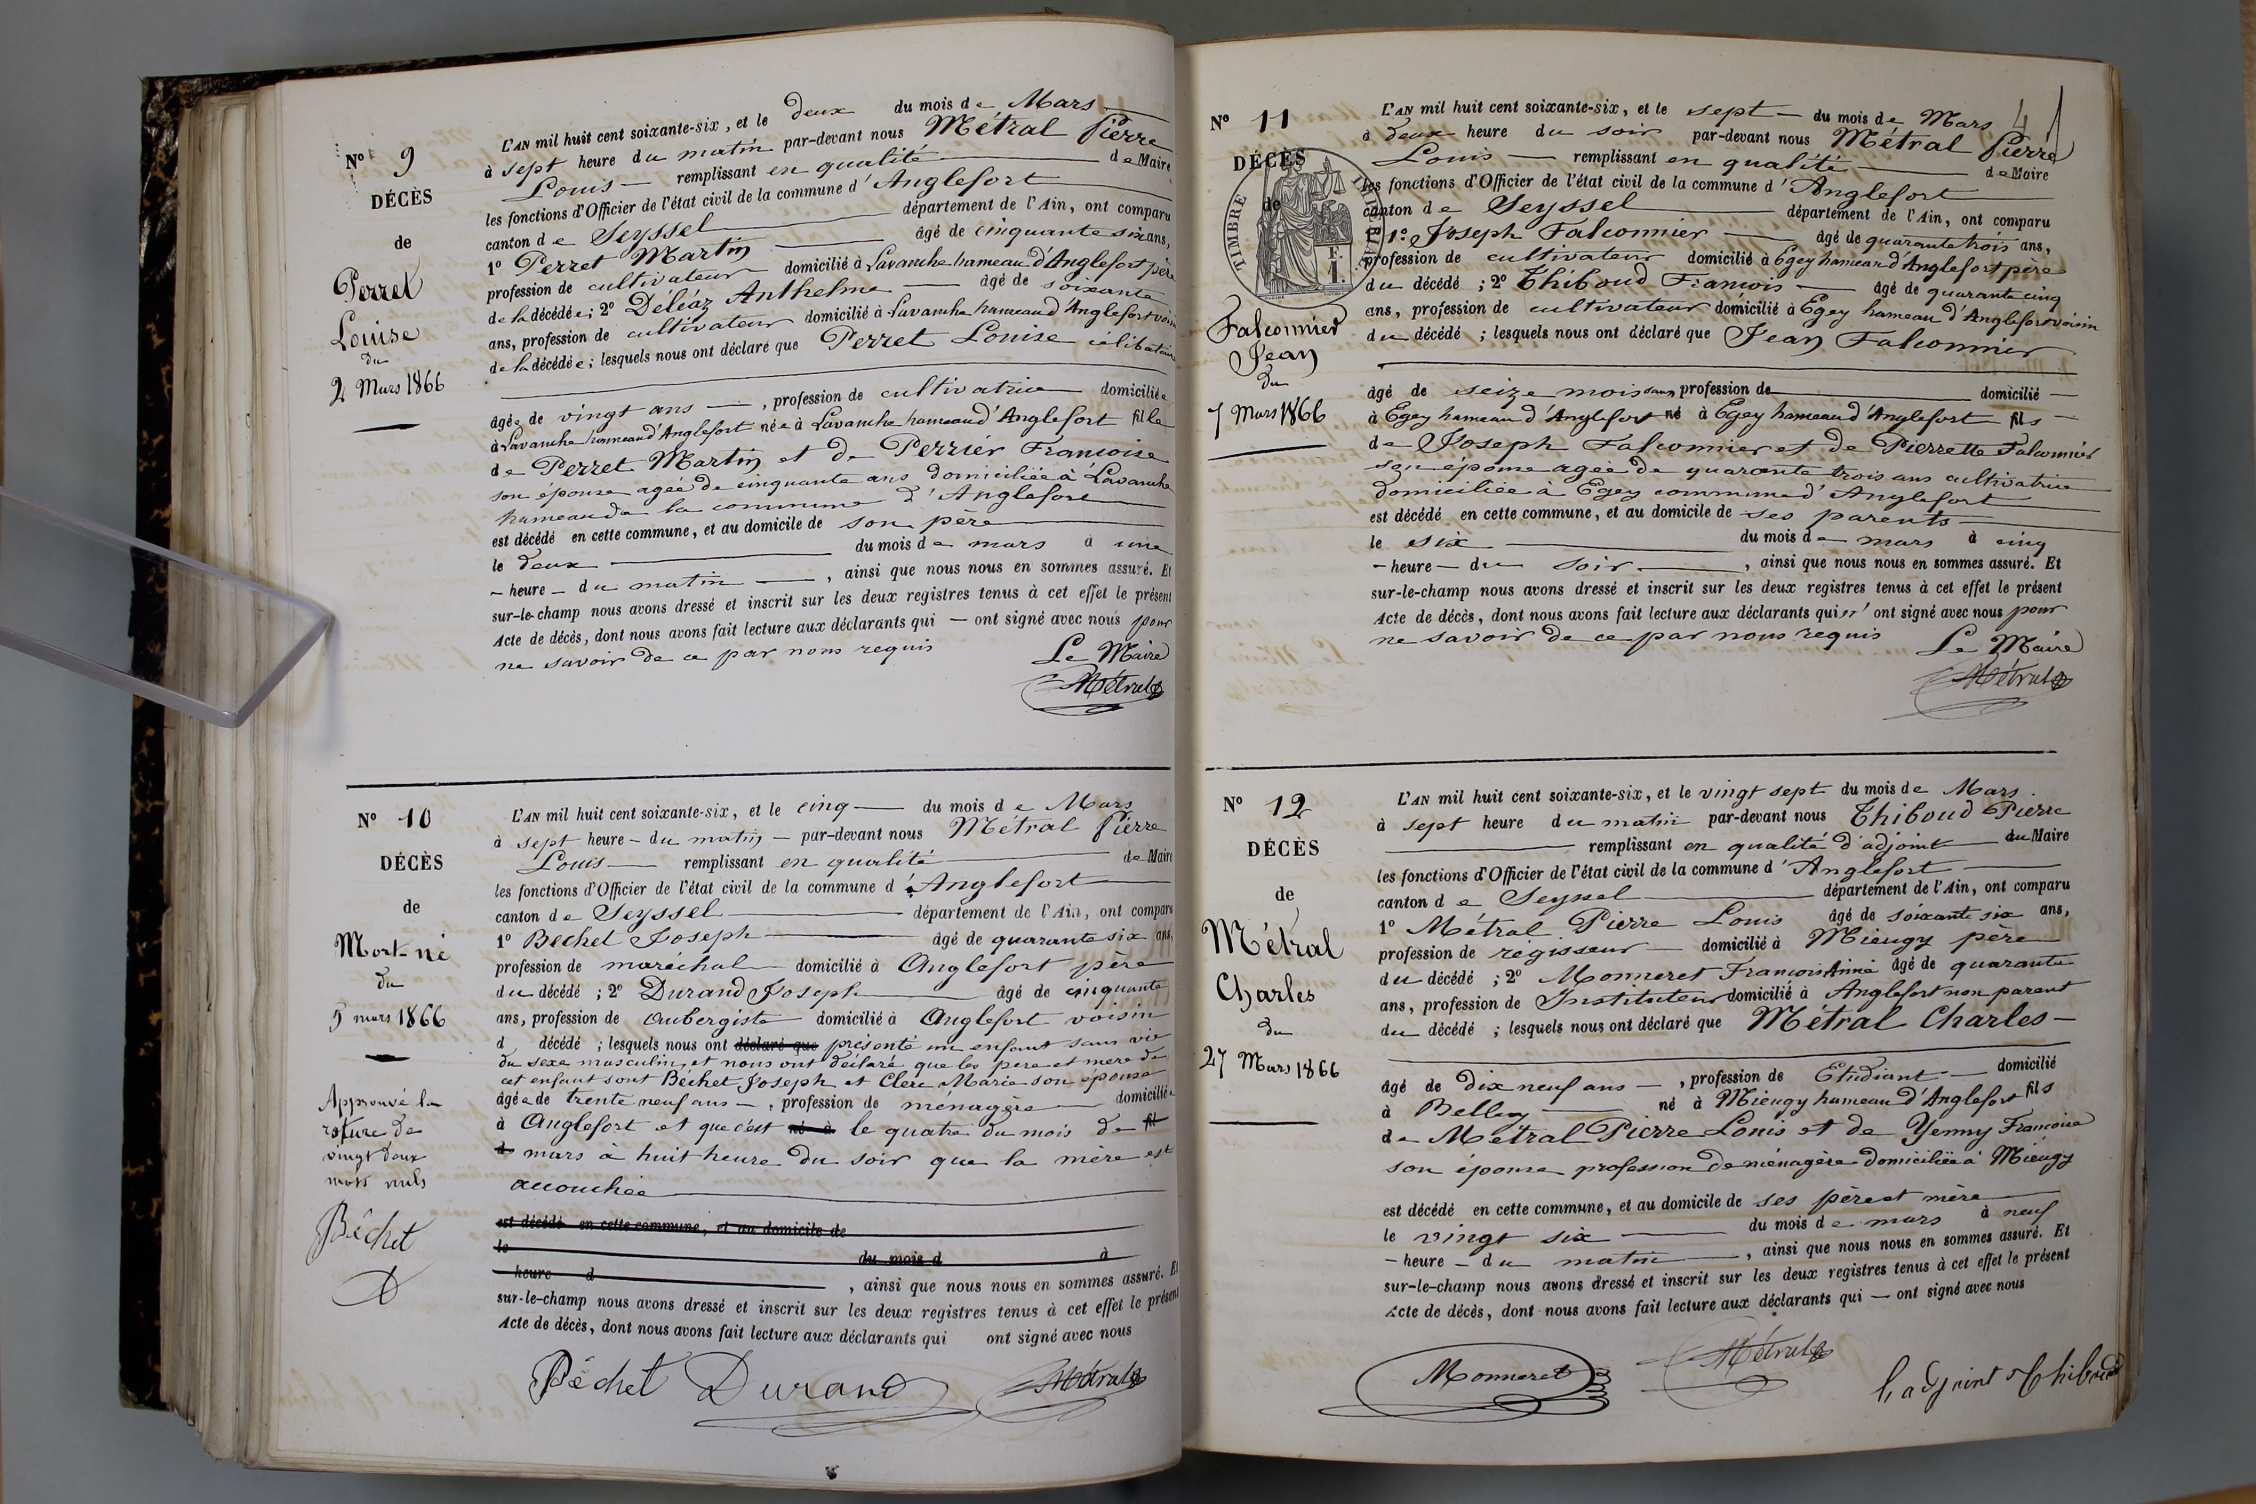 N° 9
DÉCÈS
de
Perret
Louise
du
2 Mars 1866
L'AN mil huit cent soixante-six, et le deux du mois de Mars
à sept heure du matin par-devant nous Métral Pierre
Louis remplissant en qualité de Maire
les fonctions d'Officier de l'état civil de la commune d'Anglefort
canton de Seyssel département de l'Ain, ont comparu
1° Perret Martin âgé de cinquante six ans,
profession de cultivateur domicilié à Lavanche hameau d'Anglefort père
de la décédée; 2° Déléaz Anthelme âgé de soixante
ans, profession de cultivateur domicilié à Lavanche hameau d'Anglefort voisin
de la décédée; lesquels nous ont déclaré que Perret Louise célibataire
âgée de vingt ans, profession de cultivatrice domiciliée
à Lavanche hameau d'Anglefort née à Lavanche hameau d'Anglefort fille
de Perret Martin et de Perrier Francoise
son épouse agée de cinquante ans domiciliée à Lavanche
hameau de la commune d'Anglefort
est décédé en cette commune, et au domicile de son père
le deux du mois de mars à une
heure du matin, ainsi que nous nous en sommes assuré. Et
sur-le-champ nous avons dressé et inscrit sur les deux registres tenus à cet effet le présent
Acte de décès, dont nous avons fait lecture aux déclarants qui — ont signé avec nous pour
ne savoir de ce par nous requis
Le Maire
Métral
N° 10
DÉCÈS
de
Mort-né
du
5 mars 1866
Approuvé la
rature de
vingt deux
mots nuls
Béchet
D
L'AN mil huit cent soixante-six, et le cinq du mois de Mars
à sept heure du matin par-devant nous Métral Pierre
Louis remplissant en qualité de Maire
les fonctions d'Officier de l'état civil de la commune d'Anglefort
canton de Seyssel département de l'Ain, ont comparu
1° Bechet Joseph âgé de quarante six ans,
profession de maréchal domicilié à Anglefort père
du décédé; 2° Durand Joseph âgé de cinquante
ans, profession de aubergiste domicilié à Anglefort voisin
d décédé; lesquels nous ont déclaré que présenté un enfant sans vie
du sexe masculin, et nous ont déclaré que les père et mère de
cet enfant sont Bechet Joseph et Clerc Marie son épouse
âgée de trente neuf ans, profession de ménagère domiciliée
à Anglefort et que c'est né à le quatre du mois de fil
d mars à huit heure du soir que la mère est
accouchée
est décédé en cette commune, et au domicile de
le du mois d à
heure d, ainsi que nous nous en sommes assuré. Et
sur-le-champ nous avons dressé et inscrit sur les deux registres tenus à cet effet le présent
Acte de décès, dont nous avons fait lecture aux déclarants qui ont signé avec nous
Béchet Durand Métral
N° 11
DÉCÈS
de
TIMBRE IMPERIAL
F.
1.
Falconnier
Jean
du
7 Mars 1866
4
L'AN mil huit cent soixante-six, et le sept du mois de Mars
à deux heure du soir par-devant nous Métral Pierre
Louis remplissant en qualité de Maire
les fonctions d'Officier de l'état civil de la commune d'Anglefort
canton de Seyssel département de l'Ain, ont comparu
1° Joseph Falconnier âgé de quarante trois ans,
profession de cultivateur domicilié à Egey hameau d'Anglefort père
du décédé; 2° Thiboud Francois âgé de quarante cinq
ans, profession de cultivateur domicilié à Egey hameau d'Anglefort voisin
du décédé; lesquels nous ont déclaré que Jean Falconnier
âgé de seize mois sans profession de domicilié
à Egey hameau d'Anglefort né à Egey hameau d'Anglefort fils
de Joseph Falconnier et de Pierrette Falconnier
son épouse agée de quarante trois ans cultivatrice
domiciliée à Egey commune d'Anglefort
est décédé en cette commune, et au domicile de ses parents
le six du mois de mars à cinq
heure du soir, ainsi que nous nous en sommes assuré. Et
sur-le-champ nous avons dressé et inscrit sur les deux registres tenus à cet effet le présent
Acte de décès, dont nous avons fait lecture aux déclarants qui n'ont signé avec nous pour
ne savoir de ce par nous requis
Le Maire
Métral
N° 12
DÉCÈS
de
Métral
Charles
du
27 Mars 1866
L'AN mil huit cent soixante-six, et le vingt sept du mois de Mars
à sept heure du matin par-devant nous Thiboud Pierre
remplissant en qualité d'adjoint du Maire
les fonctions d'Officier de l'état civil de la commune d'Anglefort
canton de Seyssel département de l'Ain, ont comparu
1° Métral Pierre Louis âgé de soixante six ans,
profession de régisseur domicilié à Mieugy père
du décédé; 2° Monneret Francois Aimé âgé de quarante
ans, profession de Instituteur domicilié à Anglefort non parent
du décédé; lesquels nous ont déclaré que Métral Charles
âgé de Dix neuf ans, profession de Etudiant domicilié
à Belley né à Mieugy hameau d'Anglefort fils
de Métral Pierre Louis et de Yenny Francoise
son épouse profession de ménagère domiciliée à Mieugy
est décédé en cette commune, et au domicile de ses père et mère
le vingt six du mois de mars à neuf
heure du matin, ainsi que nous nous en sommes assuré. Et
sur-le-champ nous avons dressé et inscrit sur les deux registres tenus à cet effet le présent
Acte de décès, dont nous avons fait lecture aux déclarants qui — ont signé avec nous
Monneret Métral L'adjoint Thiboud